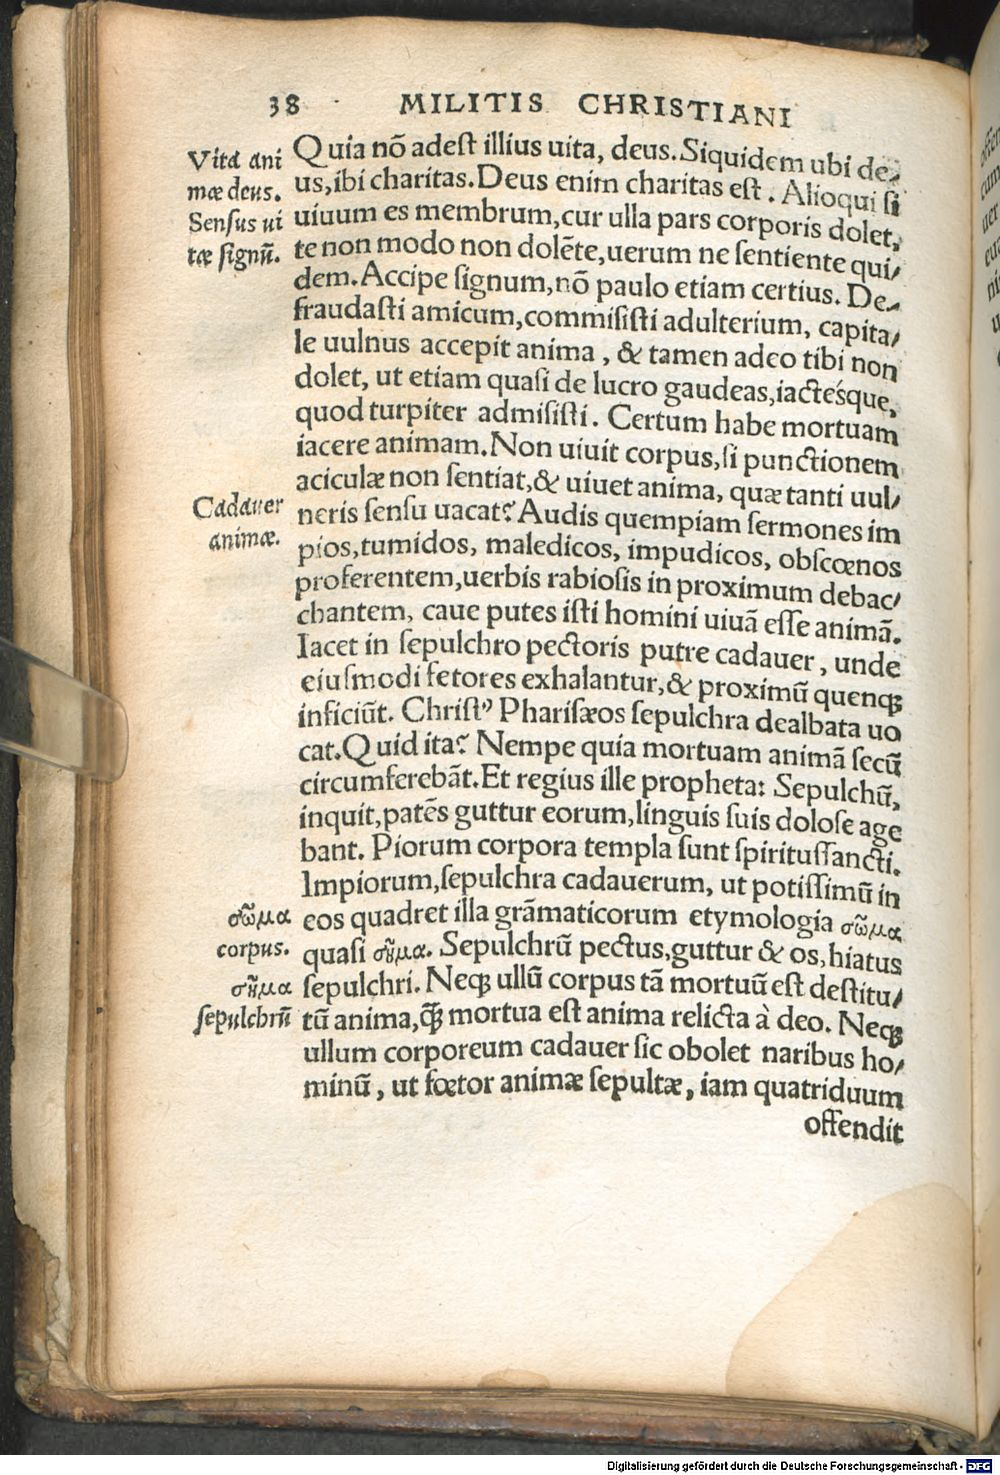 38 MILITIS CHRISTIANI
Vita ani
mæ deus.
Sensus ui
tæ signū.
Quia nō adest illius uita, deus. Siquidem ubi de⸗
us, ibi charitas. Deus enim charitas est. Alioqui si
uiuum es membrum, cur ulla pars corporis dolet,
te non modo non dolēte, uerum ne sentiente qui⸗
dem. Accipe signum, nō paulo etiam certius. De⸗
fraudasti amicum, commisisti adulterium, capita⸗
le uulnus accepit anima, & tamen adeo tibi non
dolet, ut etiam quasi de lucro gaudeas, iactésque,
quod turpiter admisisti. Certum habe mortuam
iacere animam. Non uiuit corpus, si punctionem
aciculæ non sentiat, & uiuet anima, quæ tanti uul⸗
Cadauer
animæ.
neris sensu uacat? Audis quempiam sermones im
pios, tumidos, maledicos, impudicos, obscœnos
proferentem, uerbis rabiosis in proximum debac⸗
chantem, caue putes isti homini uiuā esse animā.
Iacet in sepulchro pectoris putre cadauer, unde
eiusmodi fetores exhalantur, & proximū quenqꝫ
inficiūt. Christꝰ Pharisæos sepulchra dealbata uo
cat. Quid ita? Nempe quia mortuam animā secū
circumferebāt. Et regius ille propheta: Sepulchū,
inquit, patēs guttur eorum, linguis suis dolose age
bant. Piorum corpora templa sunt spiritussancti.
Impiorum, sepulchra cadauerum, ut potissimū in
σῶμα
corpus.
σῆμα
sepulchrū
eos quadret illa grāmaticorum etymologia σῶμα
quasi σῆμα. Sepulchrū pectus, guttur & os, hiatus
sepulchri. Neqꝫ ullū corpus tā mortuū est destitu⸗
tū anima, q̄ꝫ mortua est anima relicta à deo. Neqꝫ
ullum corporeum cadauer sic obolet naribus ho⸗
minū, ut fœtor animæ sepultæ, iam quatriduum
offendit
Digitalisierung gefördert durch die Deutsche Forschungsgemeinschaft - DFG